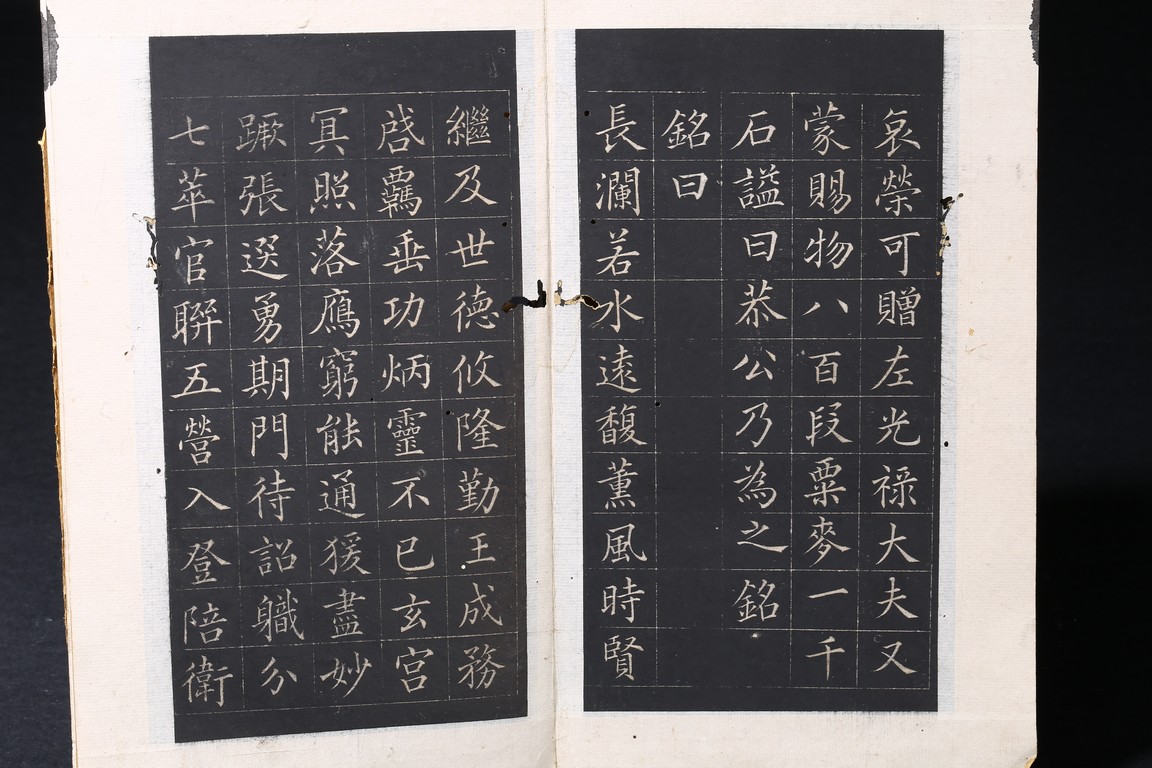 哀榮可贈左光祿大夫又
蒙賜物八百段粟麥一千
石謚曰恭公乃為之銘
銘曰
長瀾若水遠馥薰風時賢
繼及世德攸隆勤王成務
啓霸垂功炳靈不已玄宮
冥照落鴈窮能通猨盡妙
蹶張選勇期門待詔職分
七萃官聯五營入登陪衛